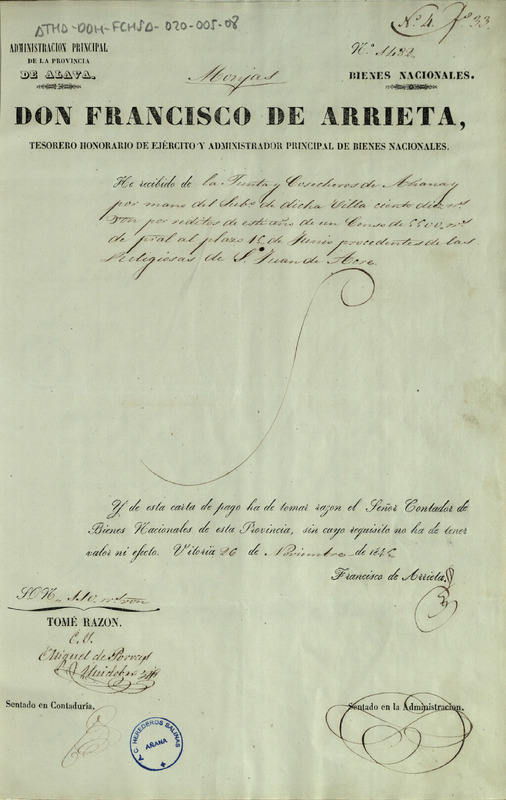 ATHA-DAH-FCHSA-020-005-08
Nº 4. Fº 33
ADMINISTRACION PRINCIPAL
DE LA PROVINCIA
DE ALAVA.
Monjas
Nº 1482
BIENES NACIONALES.
DON FRANCISCO DE ARRIETA,
TESORERO HONORARIO DE EJÉRCITO Y ADMINISTRADOR PRINCIPAL DE BIENES NACIONALES.
He recibido de la Junta y Cosecheros de Añana y
por mano del de dicha Villa ciento diez rs
von por reditos de este año de un Censo de 5500 rs
de pral al plazo 15 de Junio procedentes de las
Religiosas de S. Juan de Acre.
Y de esta carta de pago ha de tomar razon el Señor Contador de
Bienes Nacionales de esta Provincia, sin cuyo requisito no ha de tener
valor ni efecto. Vitoria 26 de Noviembre de 184
Francisco de Arrieta.
SON 110 rs von
TOMÉ RAZON.
Miguel de
Sentado en Contaduría.
Sentado en la Administracion.
A.C. HEREDEROS SALINAS
AÑANA